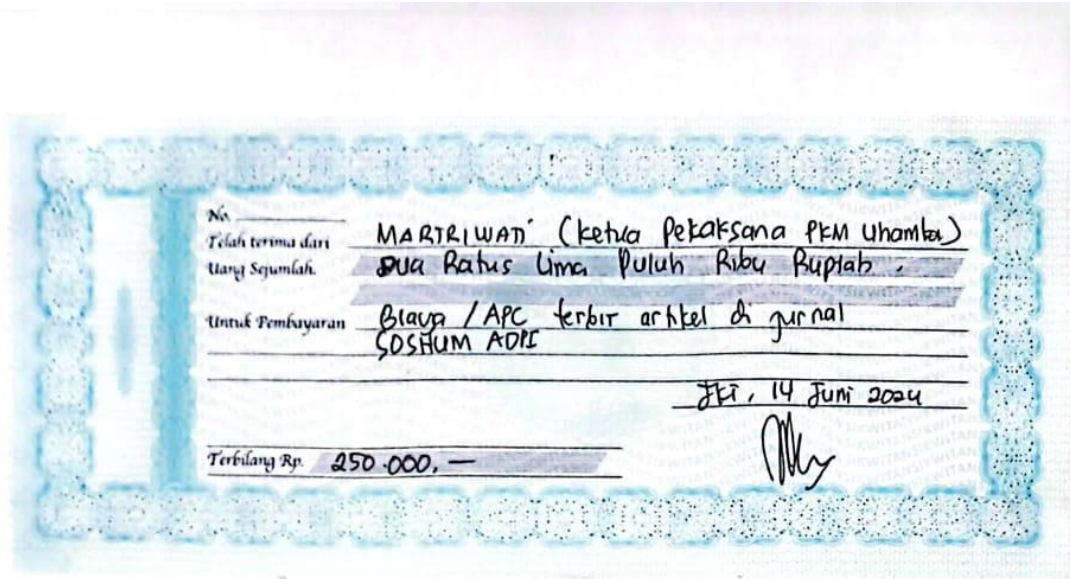 No.
Telah terima dari MARTRIWATI (Ketua Pelaksana PKM Uhamka)
Uang Sejumlah. Dua Ratus Lima Puluh Ribu Rupiah.
Untuk Pembayaran Biaya / APC terbit artikel di jurnal
SOSHUM ADPI
Jkt, 14 Juni 2024
Terbilang Rp. 250.000, —